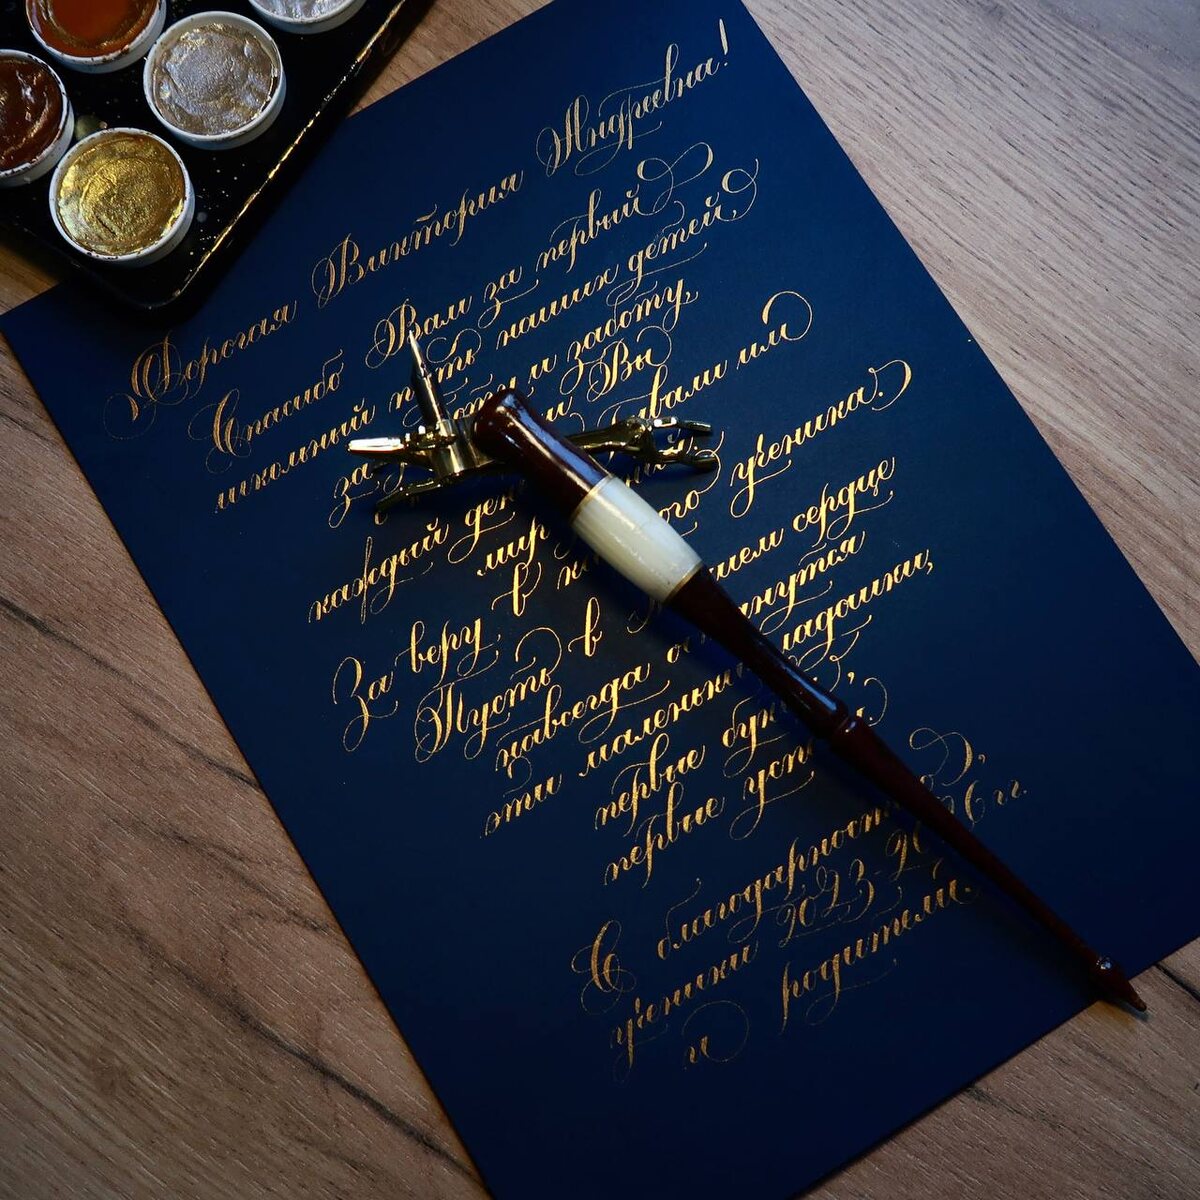 Дорогая Виктория Андреевна!
Спасибо Вам за первый
школьный путь наших детей,
за заботу,
Вы
каждый им
мир
За веру в ученика.
Пусть в сердце
навсегда останутся
эти маленькие ладошки,
первые
первые
С благодарностью,
ученики 2023-2026 гг.
и родители.